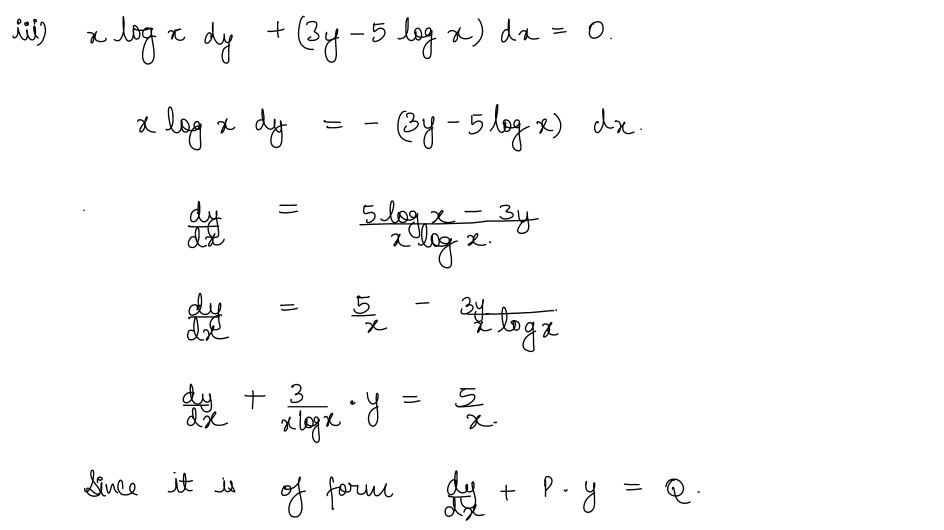 iii) x log x dy + (3y - 5 log x) dx = 0.
x log x dy = - (3y - 5 log x) dx.
dy/dx = (5 log x - 3y)/(x log x).
dy/dx = 5/x - 3y/(x log x)
dy/dx + 3/(x log x) · y = 5/x.
Since it is of form dy/dx + P. y = Q.